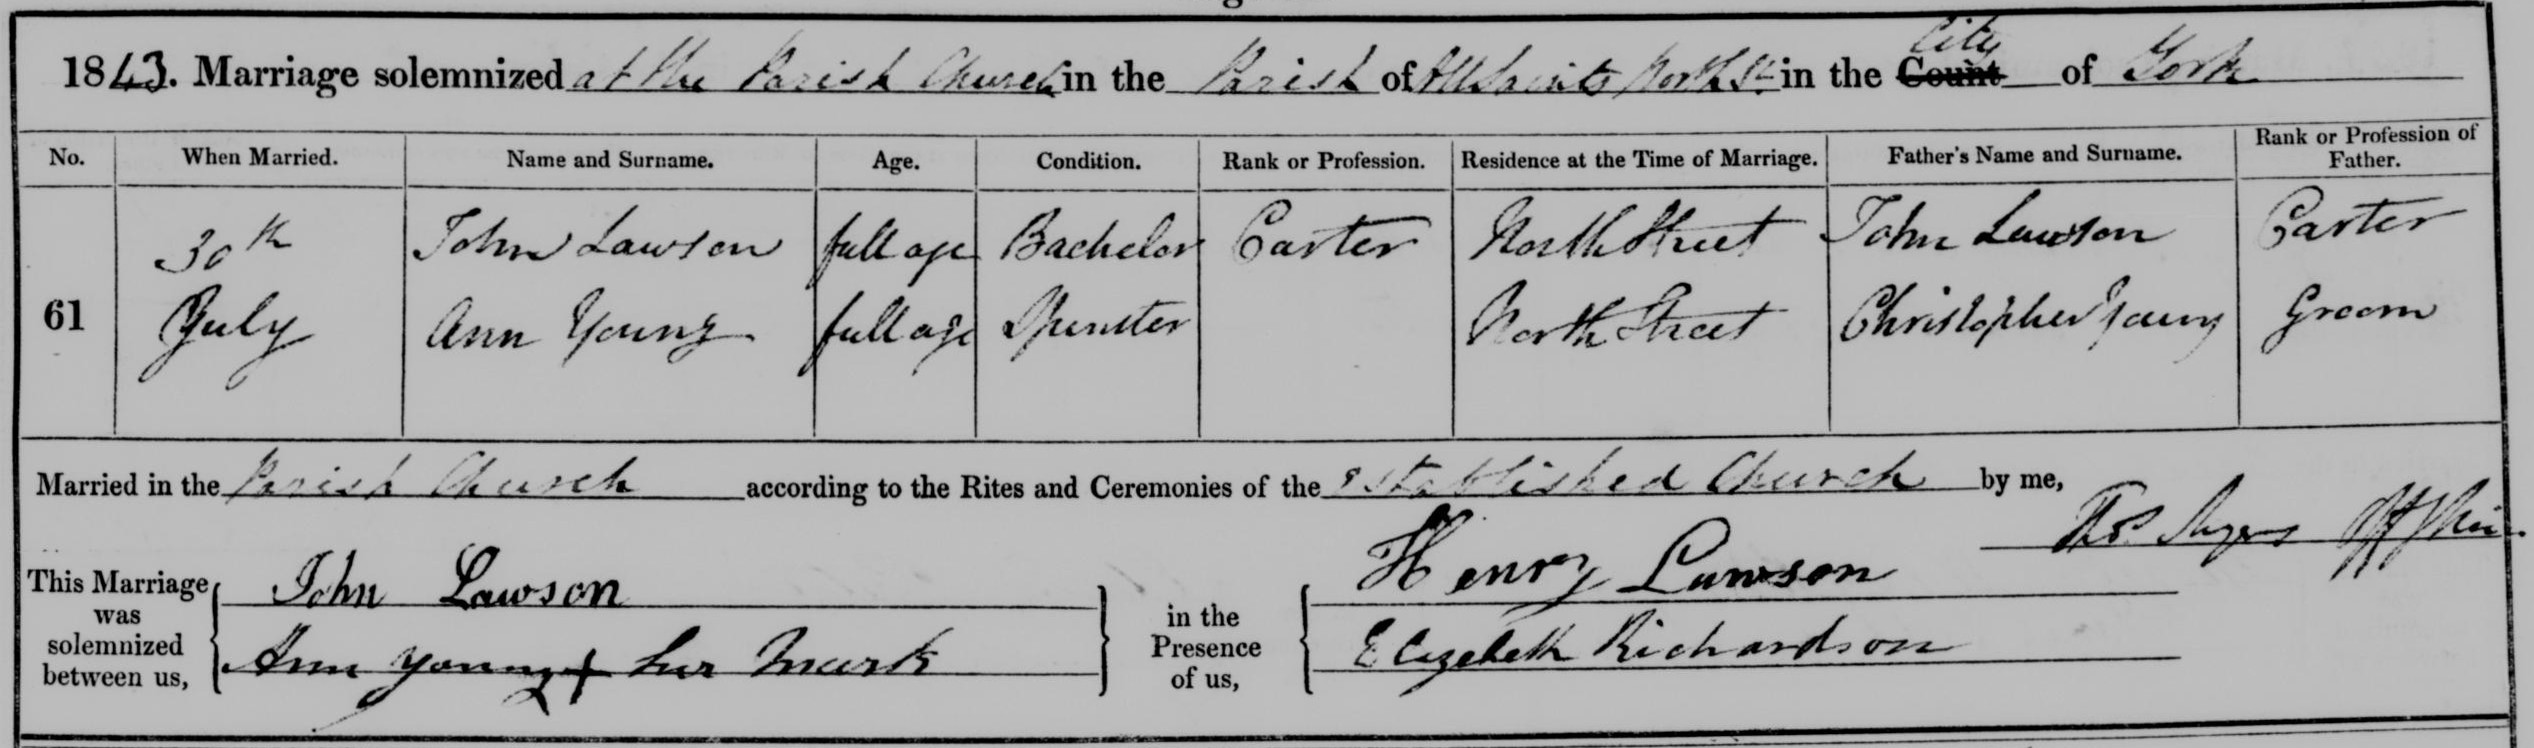 1843. Marriage solemnized at the Parish Church in the Parish of All Saints North St. in the Count City of York
No. When Married. Name and Surname. Age. Condition. Rank or Profession. Residence at the Time of Marriage. Father's Name and Surname. Rank or Profession of Father.
61
30th July
John Lawson full age Bachelor Carter North Street John Lawson Carter
Ann Young full age Spinster North Street Christopher Young Groom
Married in the Parish Church according to the Rites and Ceremonies of the Established Church by me,
Thos. Myers
This Marriage was solemnized between us,
John Lawson
Ann Young + her Mark
in the Presence of us,
Henry Lawson
Elizebeth Richardson